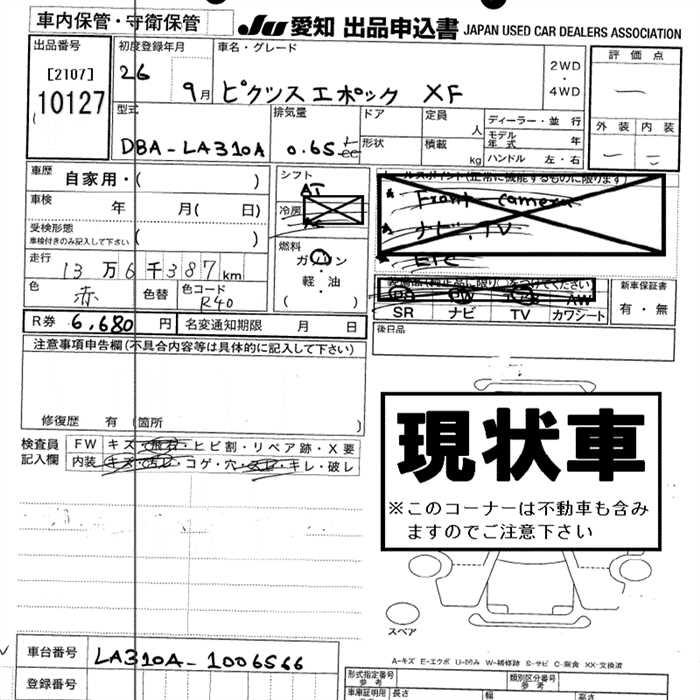 車内保管・守衛保管
JU 愛知 出品申込書 JAPAN USED CAR DEALERS ASSOCIATION
出品番号
[2107]
10127
初度登録年月
26
9月
車名・グレード
ピクシス エポック XF
2WD
・
4WD
評価点
―
外装 内装
― ―
型式
DBA-LA310A
排気量
0.65
ドア
形状
定員
人
積載
kg
ディーラー・並行
モデル年式 年
ハンドル 左・右
車歴
自家用・( )
シフト
AT
冷房
車検
年 月( 日)
受検形態
車検付きのみ記入して下さい
( )
走行
13万6千387km
燃料
ガソリン
・
軽・油
( )
色
赤
色替
色コード
R40
セールスポイント(正常に機能するものに限ります)
Front camera
ナビ、TV
ETC
装備品(純正品に限り○をつけてください)
AW
SR ナビ TV カワシート
新車保証書
有・無
R券 6,680円
名変通知期限 月 日
後日品
注意事項申告欄(不具合内容等は具体的に記入して下さい)
修復歴 有 (箇所 )
検査員記入欄
FW キズ・飛石・ヒビ割・リペア跡・X要
内装 キズ・汚レ・コゲ・穴・スレ・キレ・破レ
現状車
※このコーナーは不動車も含み
ますのでご注意下さい
スペア
A-キズ E-エクボ U-凹み W-補修跡 S-サビ C-腐食 XX-交換済
車台番号 LA310A-1006566
登録番号
形式指定番号
参考
類別区分番号
参考
車庫証明用
長さ
幅
高さ